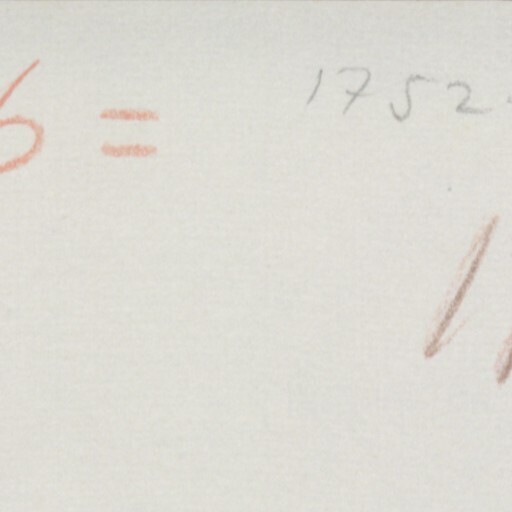 6 = 1752